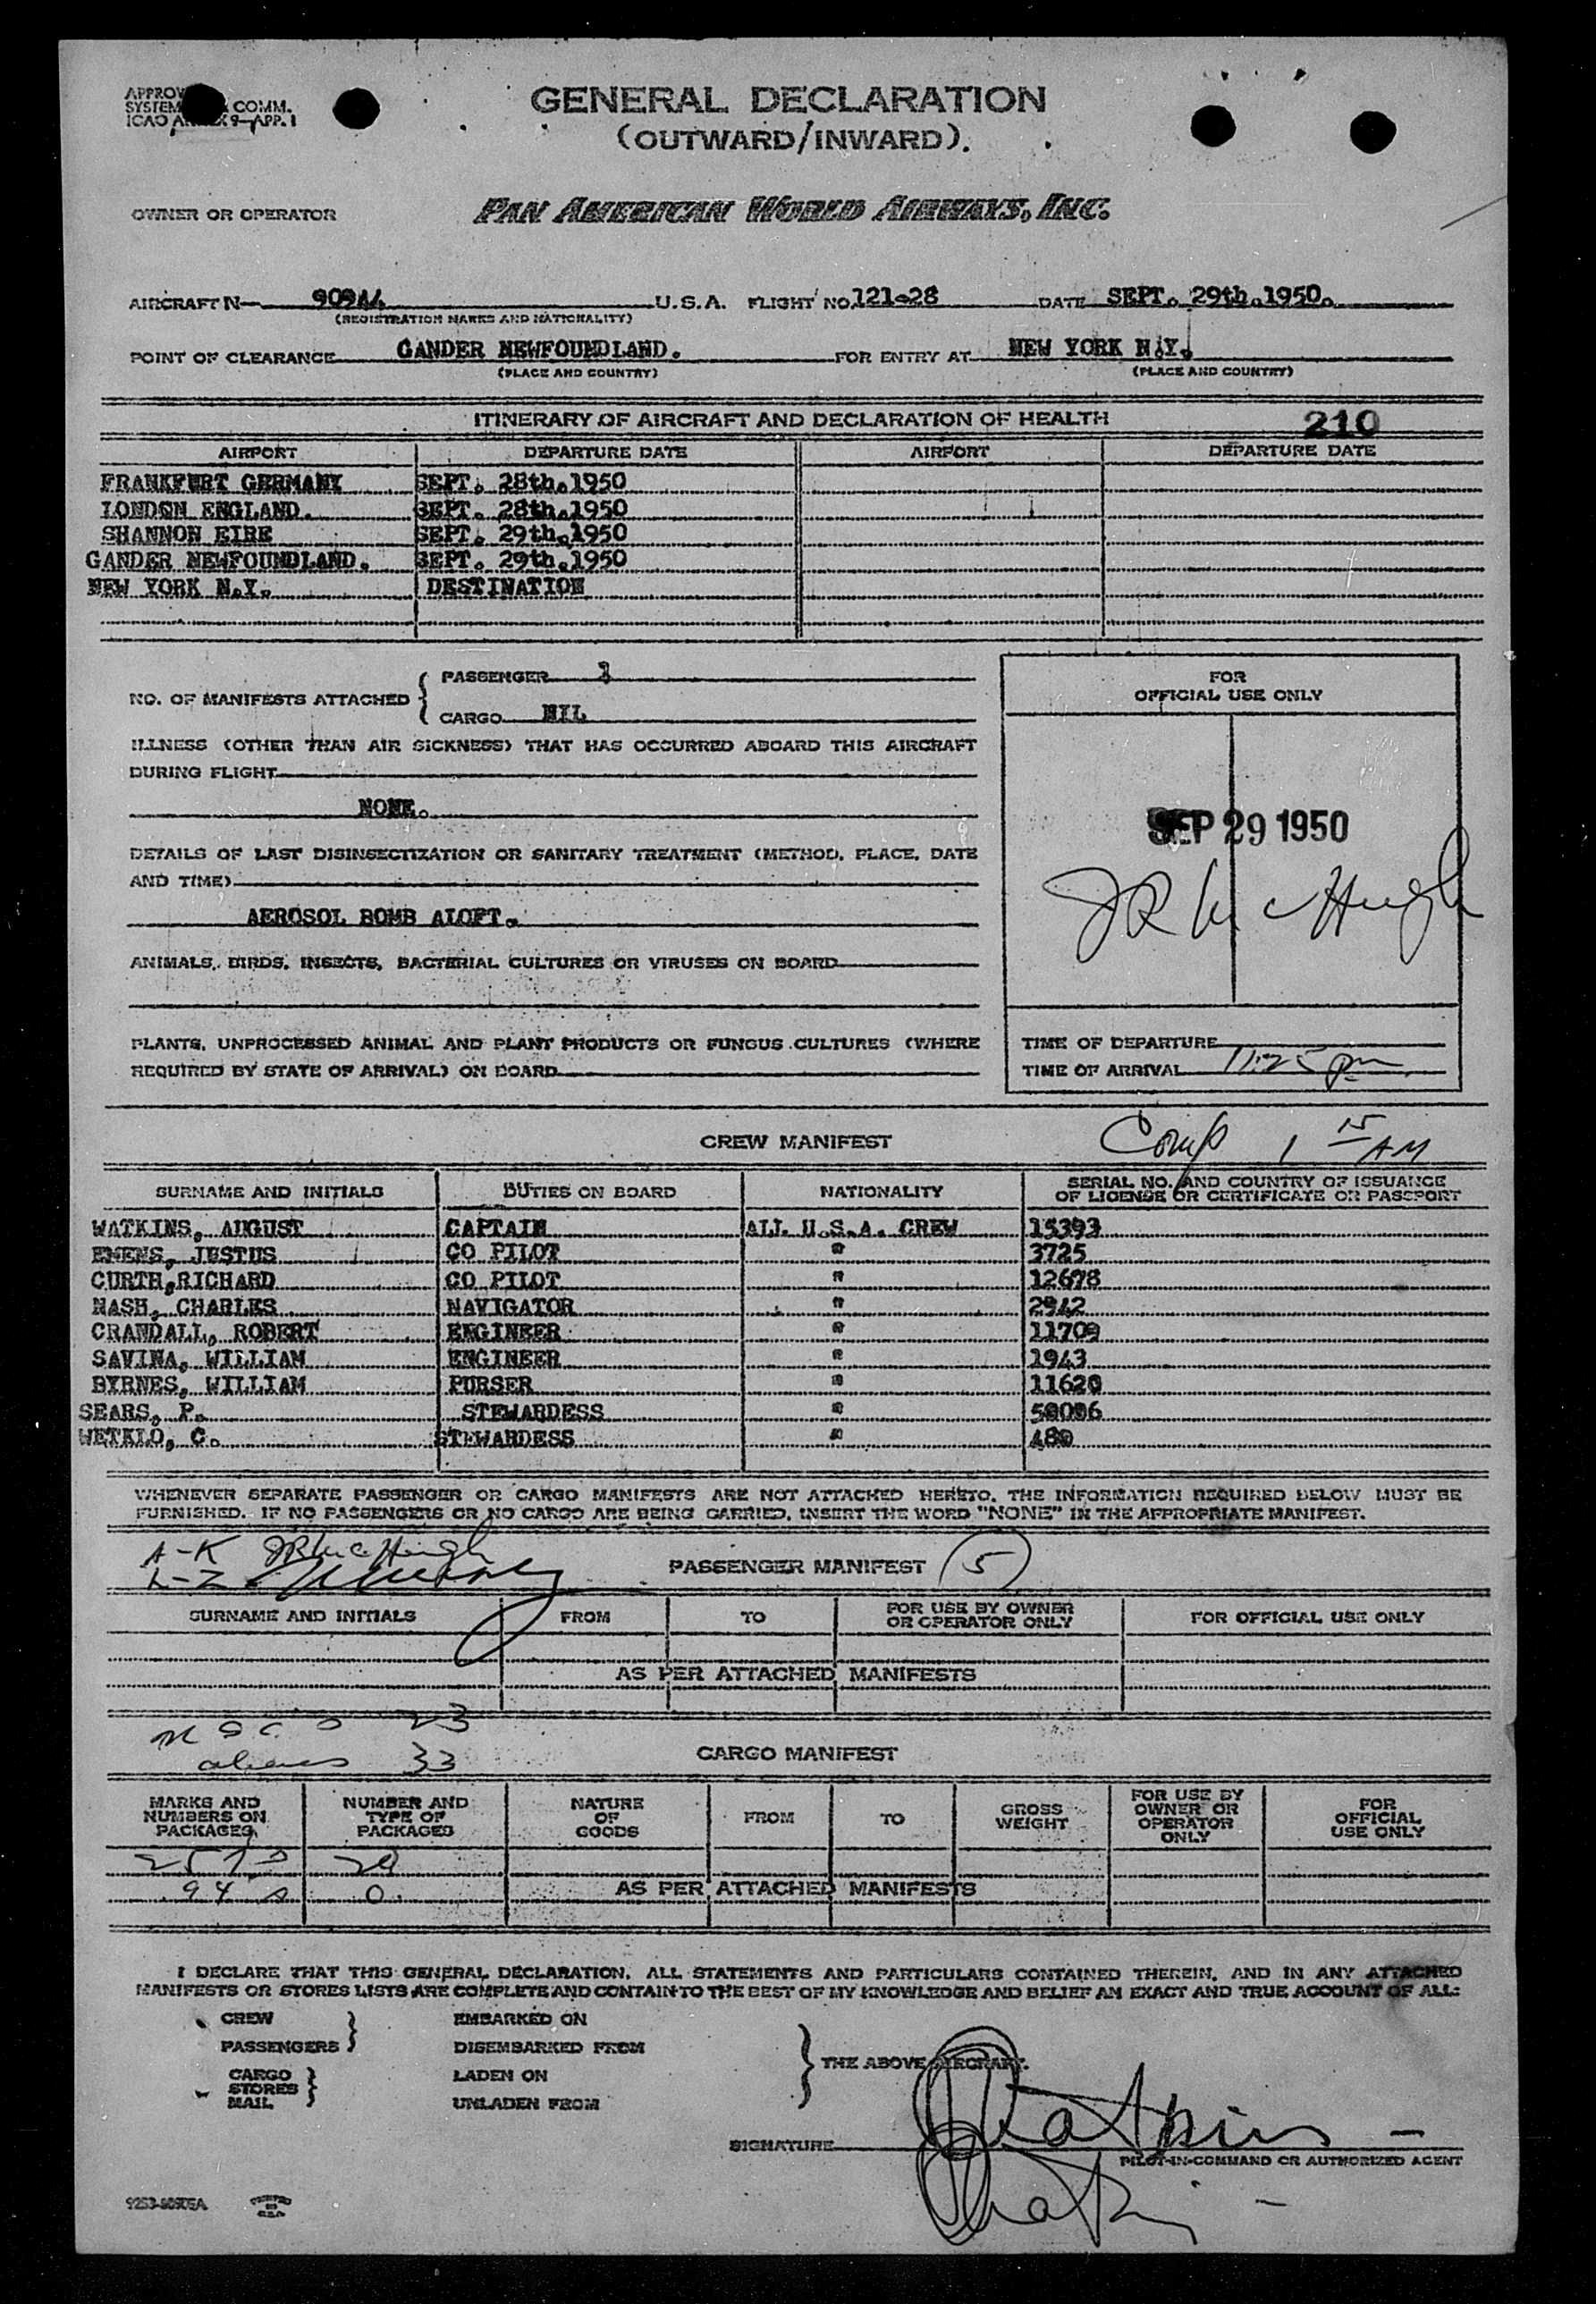 GENERAL DECLARATION
(OUTWARD/INWARD).
COMM.
OWNER OR OPERATOR PAN AMERICAN WORLD AIRWAYS, INC.
AIRCRAFT N— 90944 U.S.A. FLIGHT NO. 121-28 DATE SEPT. 29th.1950.
(REGISTRATION MARKS AND NATIONALITY)
POINT OF CLEARANCE GANDER NEWFOUNDLAND. FOR ENTRY AT NEW YORK N.Y.
(PLACE AND COUNTRY) (PLACE AND COUNTRY)
ITINERARY OF AIRCRAFT AND DECLARATION OF HEALTH 210
AIRPORT DEPARTURE DATE AIRPORT DEPARTURE DATE
FRANKFURT GERMANY SEPT. 28th.1950
LONDON ENGLAND. SEPT. 28th.1950
SHANNON EIRE SEPT. 29th.1950
GANDER NEWFOUNDLAND. SEPT. 29th.1950
NEW YORK N.Y. DESTINATION
NO. OF MANIFESTS ATTACHED { PASSENGER
CARGO NIL
FOR
OFFICIAL USE ONLY
ILLNESS (OTHER THAN AIR SICKNESS) THAT HAS OCCURRED ABOARD THIS AIRCRAFT
DURING FLIGHT
NONE.
SEP 29 1950
DETAILS OF LAST DISINSECTIZATION OR SANITARY TREATMENT (METHOD, PLACE, DATE
AND TIME)
JR McHugh
AEROSOL BOMB ALOFT.
ANIMALS, BIRDS, INSECTS, BACTERIAL CULTURES OR VIRUSES ON BOARD
PLANTS, UNPROCESSED ANIMAL AND PLANT PRODUCTS OR FUNGUS CULTURES (WHERE
REQUIRED BY STATE OF ARRIVAL) ON BOARD
TIME OF DEPARTURE
TIME OF ARRIVAL 11:25 pm
CREW MANIFEST Comp 1 15 AM
SURNAME AND INITIALS DUTIES ON BOARD NATIONALITY SERIAL NO. AND COUNTRY OF ISSUANCE
OF LICENSE OR CERTIFICATE OR PASSPORT
WATKINS, AUGUST CAPTAIN ALL U.S.A. CREW 15393
EMENS, JUSTUS CO PILOT " 3725
CURTH,RICHARD CO PILOT " 12678
NASH, CHARLES NAVIGATOR " 2942
CRANDALL, ROBERT ENGINEER " 11709
SAVINA, WILLIAM ENGINEER " 1943
BYRNES, WILLIAM PURSER " 11620
SEARS, P. STEWARDESS "
WETKLO, C. STEWARDESS " 480
WHENEVER SEPARATE PASSENGER OR CARGO MANIFESTS ARE NOT ATTACHED HERETO, THE INFORMATION REQUIRED BELOW MUST BE
FURNISHED. IF NO PASSENGERS OR NO CARGO ARE BEING CARRIED, INSERT THE WORD "NONE" IN THE APPROPRIATE MANIFEST.
A-K JR McHugh
L-Z
PASSENGER MANIFEST 5
SURNAME AND INITIALS FROM TO FOR USE BY OWNER
OR OPERATOR ONLY FOR OFFICIAL USE ONLY
AS PER ATTACHED MANIFESTS
23
aliens 33
CARGO MANIFEST
MARKS AND
NUMBERS ON
PACKAGES
NUMBER AND
TYPE OF
PACKAGES
NATURE
OF
GOODS
FROM
TO
GROSS
WEIGHT
FOR USE BY
OWNER OR
OPERATOR
ONLY
FOR
OFFICIAL
USE ONLY
94 0
AS PER ATTACHED MANIFESTS
I DECLARE THAT THIS GENERAL DECLARATION, ALL STATEMENTS AND PARTICULARS CONTAINED THEREIN, AND IN ANY ATTACHED
MANIFESTS OR STORES LISTS ARE COMPLETE AND CONTAIN TO THE BEST OF MY KNOWLEDGE AND BELIEF AN EXACT AND TRUE ACCOUNT OF ALL:
CREW EMBARKED ON
PASSENGERS DISEMBARKED FROM
THE ABOVE AIRCRAFT.
CARGO LADEN ON
STORES
MAIL UNLADEN FROM
SIGNATURE Watkins
PILOT-IN-COMMAND OR AUTHORIZED AGENT